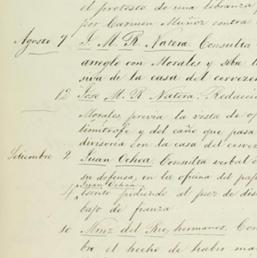 el protesto de una libranza
por Carmen Muñoz contra
Agosto 7 J. M. R. Natera Consulta
arreglo con Morales y
siva de la casa del cervecero
12 Jose M. R. Natera, Redacción
Morales previa la vista de
limitrofe y del caño que pasa
divisoria con la casa del
Setiembre 2 Juan Ochoa Consulta verbal
su defensa, en la oficina del
4 Juan Ochoa,
escrito pidiendo al juez de
bajo de fianza
10 del Rio, hermanos, Con
bre el hecho de haber